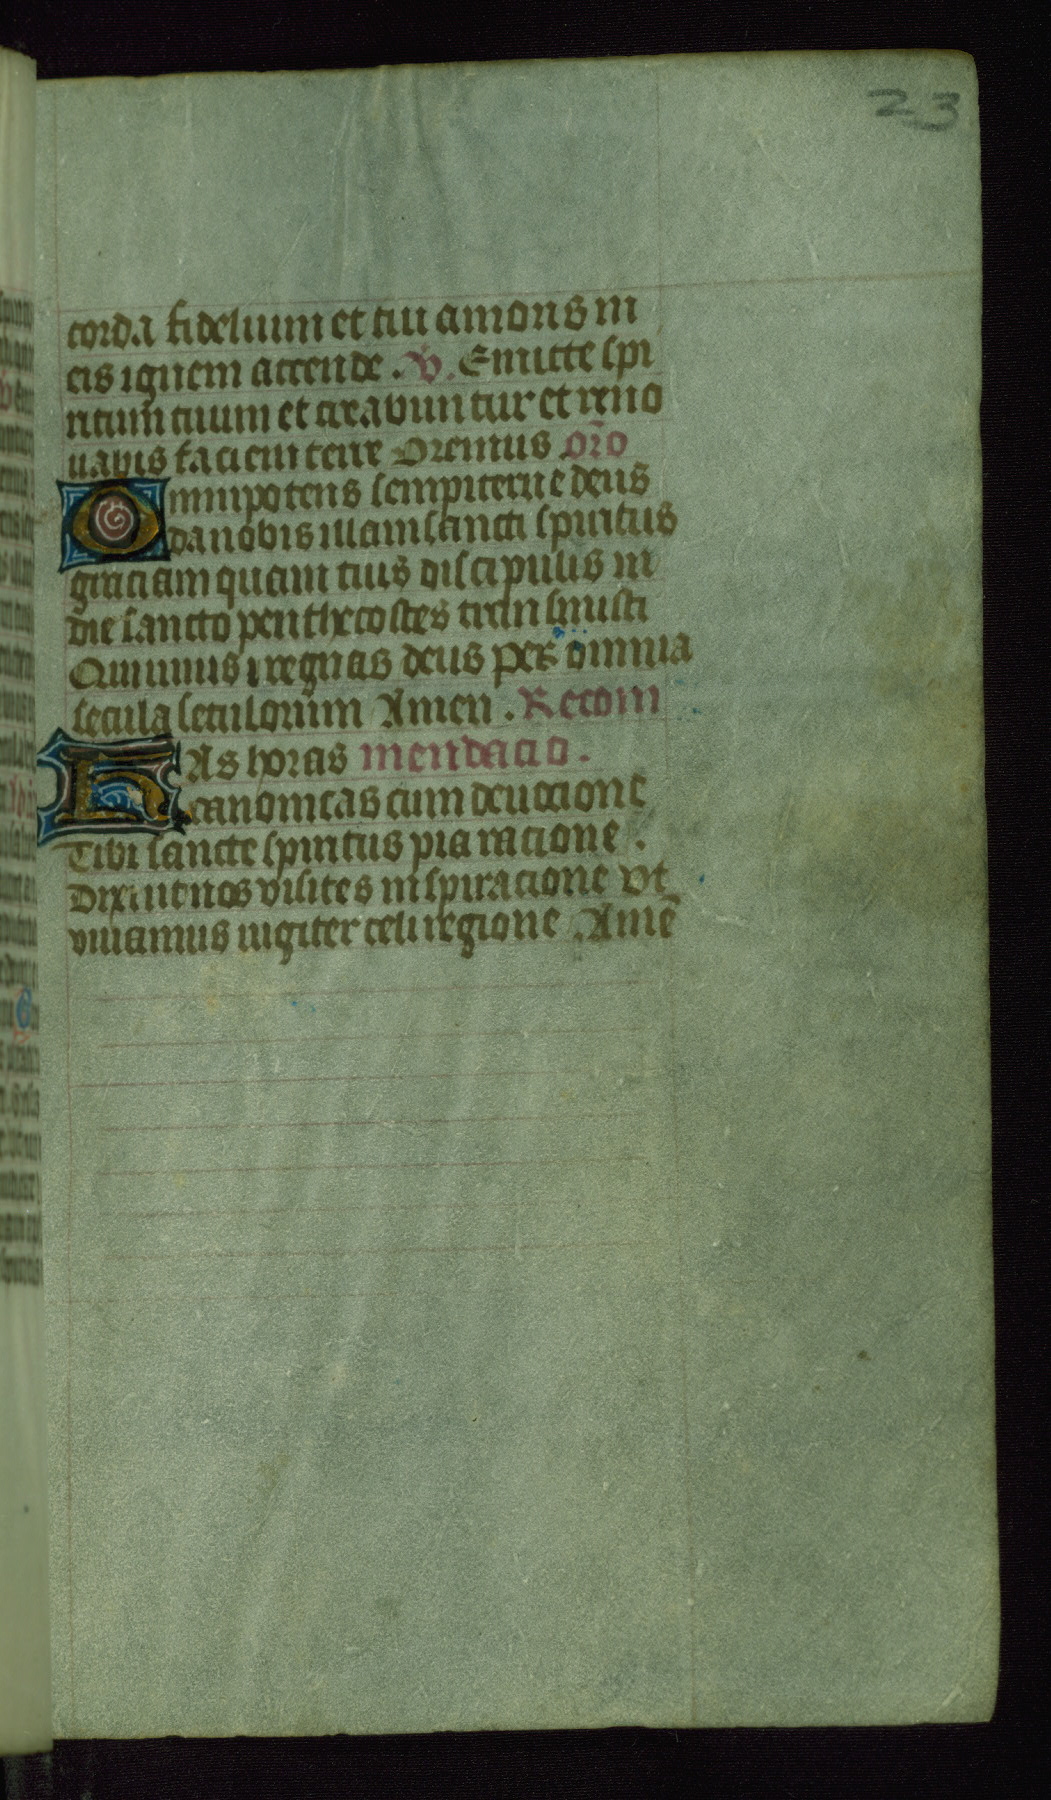 23
corda fidelium et tui amoris in
eis ignem accende . V. Emitte spi
ritum tuum et creabuntur et reno
uabis faciem terre Oremus oro̅
Omnipotens sempiterne deus
da nobis illam sancti spiritus
graciam quam tuis discipulis in
die sancto penthecostes transmisti
Qui uiuis i regnas deus per omnia
secula seculorum Amen . Recom
HAs horas mendacio .
canonicas cum deuocione
Tibi sancte spiritus pia racione .
Dixi ut nos visites inspiracione vt
viuamus iugiter celi regione . Ame̅